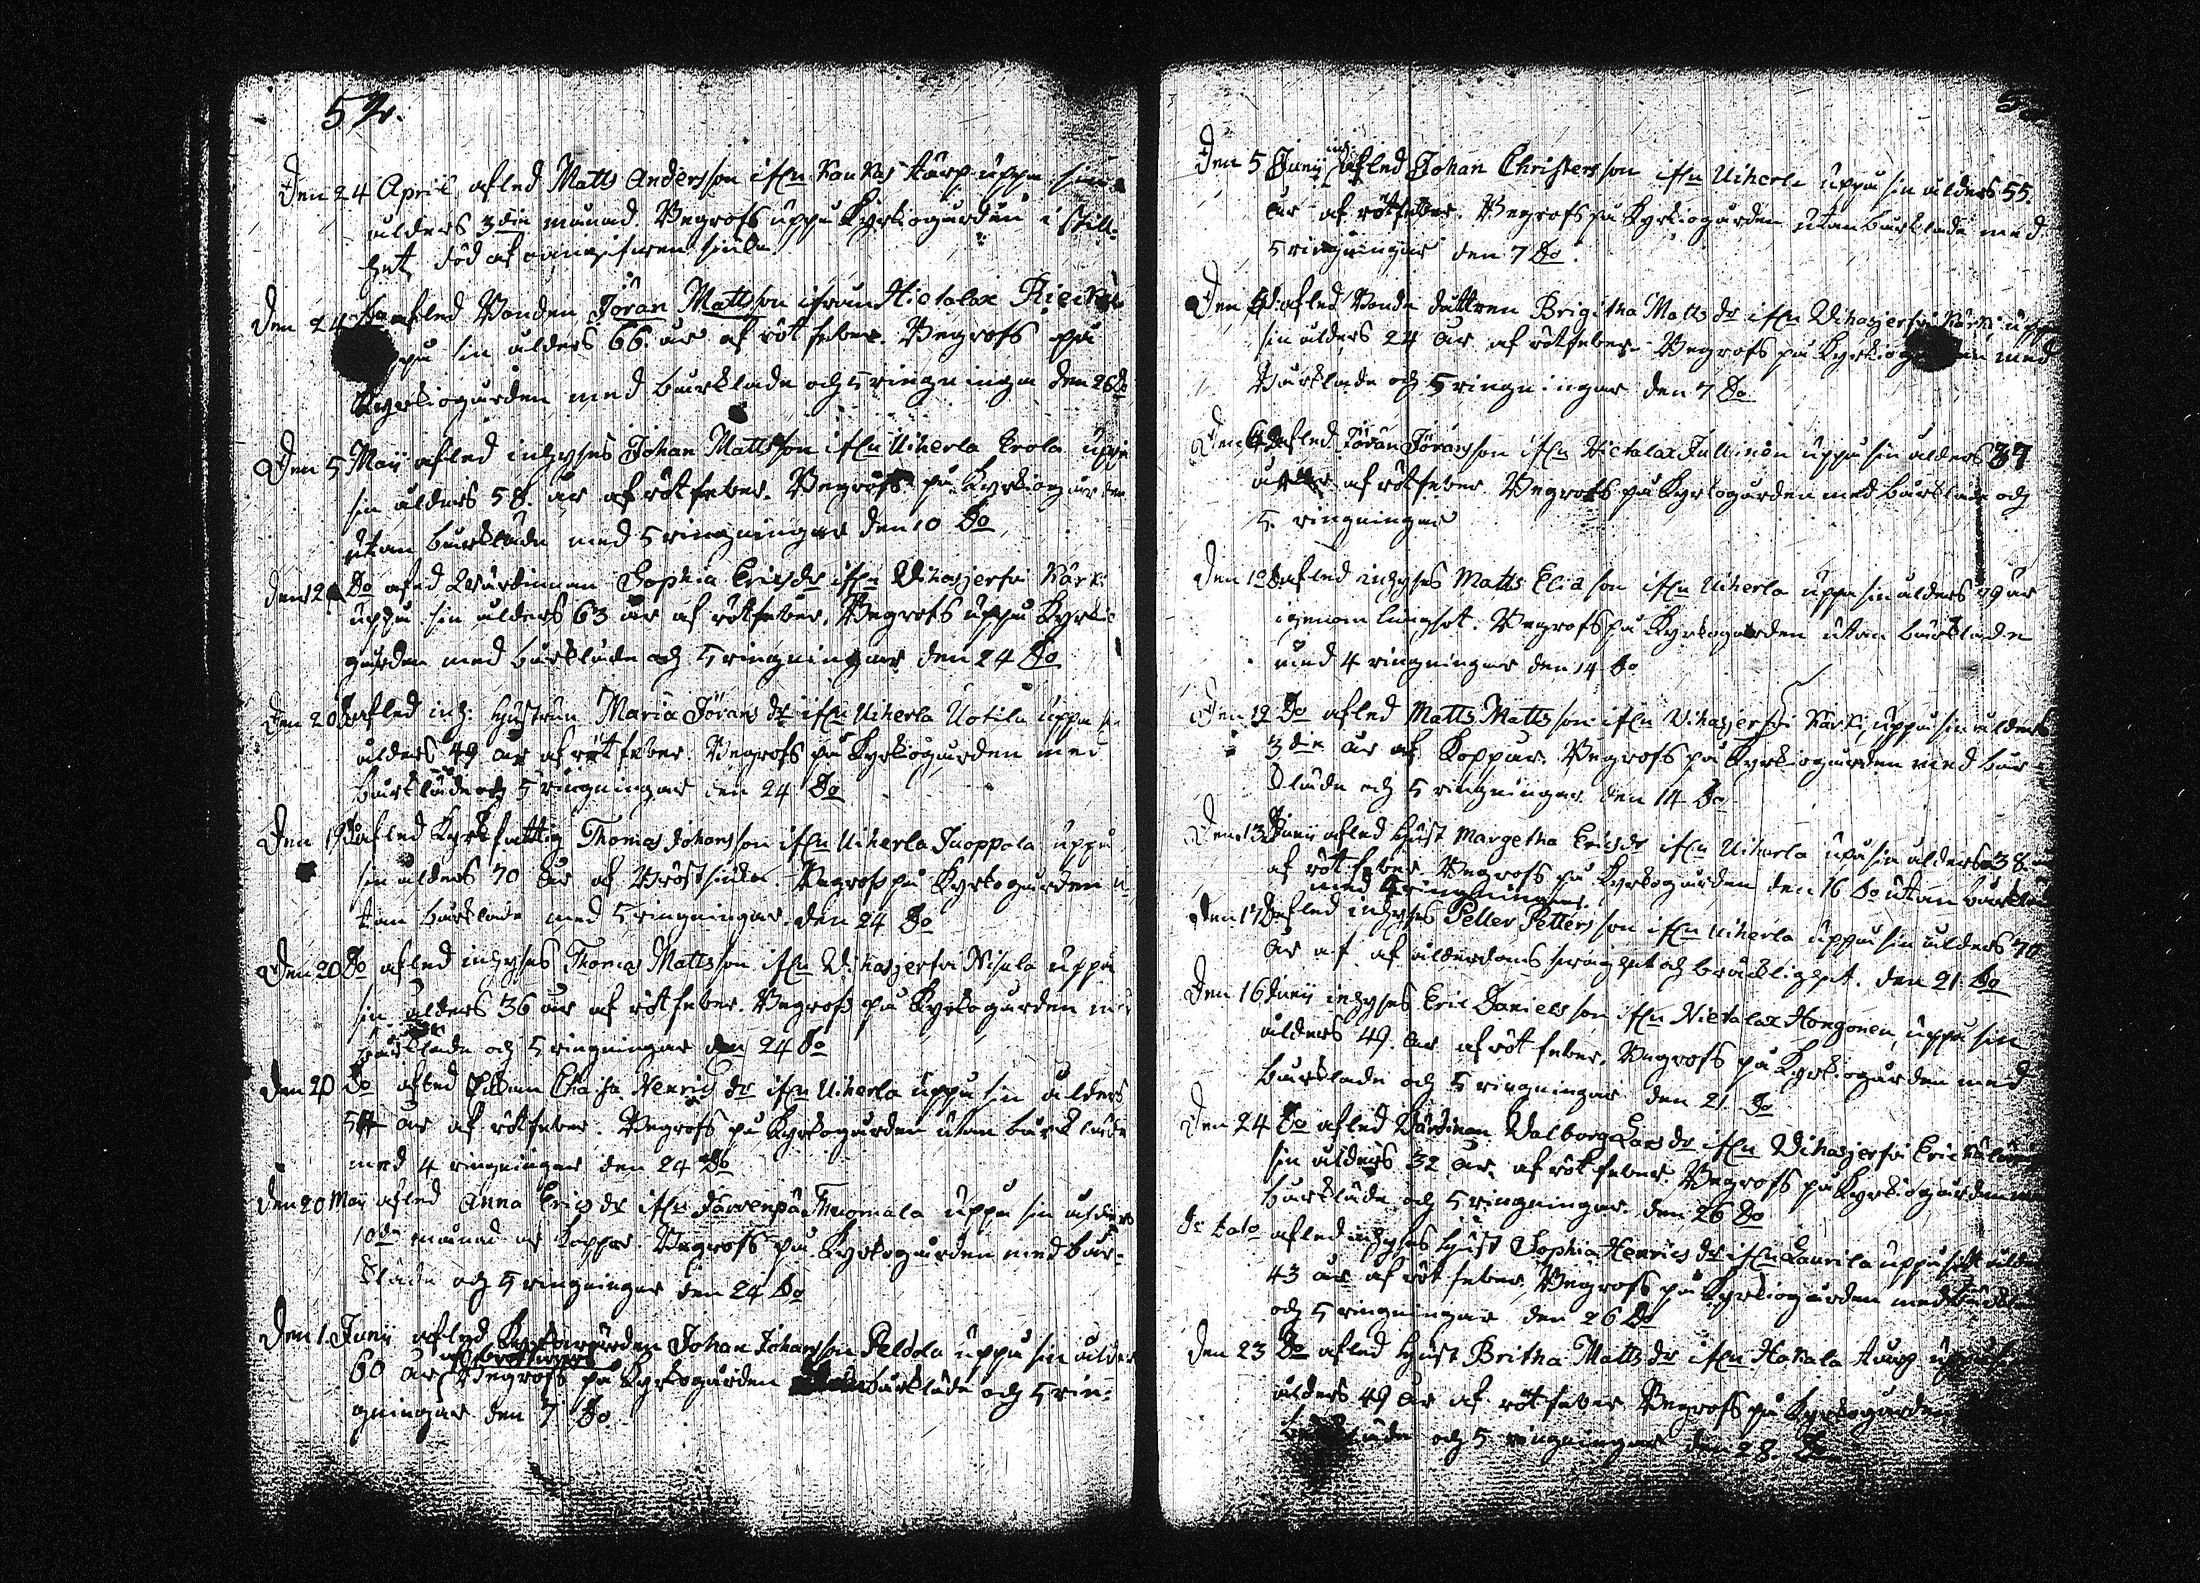 52.
Den 24 April afled Matts Andersson ifrn Kankas tårp uppå sin
ålders 3die månad Begrofs uppå Kyrkiogården i still-
het, död af
Den 24 Do afled Bonden Jöran Mattsson ifrån Hietalax
uppå sin ålders 66. år af rötfeber. Begrofs på
Kyrkiogården med bårklade och 5 ringninga den 26 Do
Den 5 Maij afled inhyses Johan Mattsson ifrn Uiherla Erola uppå
sin ålders 58. år af rötfeber. Begrofs på Kyrkiogården
utan bårkläde med 5 ringningar den 10 Do
Den 12 Do afled Wärdinnan Sophia Ericsdr ifrn Vihasjerfvi Kärki
uppå sin ålders 63 år af rötfeber. Begrofs uppå Kyrkio
gården med bårkläde och 5 ringningar den 24 Do
Den 20 Do afled inh: hustrun Maria Jörans dr ifrn Uiherla Uotila uppå sin
ålders 49 år af rötfeber. Begrofs på Kyrkiogården med
bårkläde och 5 ringningar den 24 Do
Den 19 Do afled Kyrkfattig Thomas Johansson ifrn Uiherla Juoppala uppå
sin ålders 70 år af Bröstsiuka. Begrofs på Kyrkogården u-
tan bårklade med 5 ringningar. den 24 Do
Den 20 Do afled inhyses Thomas Mattsson ifrn Vihasjerfvi Nisula uppå
sin ålders 36 år af rötfeber. Begrofs på Kyrkogården med
bårklade och 5 ringningar den 24 Do
Den 20 Do afled Enkan Chaisa Henrics dr ifrn Uiherla uppå sin ålders
54 år af rötfeber. Begrofs på Kyrkogården utan bårklade
med 4 ringningar den 24 Do
Den 20 Maij afled Anna Erics dr ifrn Järvenpä Thuomala uppå sin ålders
10de månad af Koppor. Begrofs på Kyrkogården med bår-
kläde och 5 ringningar den 24 Do
Den 1. Junij afled Kyrkowärden Johan Johansson Peldola uppå sin ålders
60 år Begrofs på Kyrkogården bårkläde och 5 rin-
gningar den 7 Do
Den 5 Junij inh: afled Johan Christersson ifrn Uiherla uppå sin ålders 55.
år af rötfeber. Begrofs på Kyrkiogården utan bårklade med
5 ringningar den 7 Do.
Den Do afled Bonde dottren Brigitha Matts dr ifrn Vihasjerfvi Kärki uppå
sin ålders 24 år af rötfeber. Begrofs på Kyrkiogården med
bårklade och 5 ringningar den 7 Do
Den Do afled Jöran Jöransson ifrn Hietalax Jullinen uppå sin ålders 39
år af rötfeber Begrofs på Kyrkogården med bårkläde och
5 ringningar
Den 10 Do afled inhyses Matts Eliæson ifrn Uiherla uppå sin ålders 79 år
igenom lungsot. Begrofs på Kyrkogården utan bårklade
med 4 ringningar den 14 Do
Den 12 Do afled Matts Mattsson ifrn Vihasjerfvi Kärki uppå sin ålders
3die år af Koppor. Begrofs på Kyrkiogården med bår-
kläde och 5 ringningar den 14 Do
Den 13 Junij afled Hust Margetha Ericsdr ifrn Uiherla upå sin ålders 38.
af rötfeber Begrofs på Kyrkogården den 16 Do utan bårklä
med ringningar.
Den 17 Do afled inhyses Petter Petters son ifrn Uiherla uppå sin ålders 70
år af af ålderdoms swaghet och bräcklighet. den 21 Do
Den 16 Junij inhyses Eric Danielsson ifrn Hietalax Hongonen, uppå sin
ålders 49. år af rötfeber. Begrofs på Kyrkiogården med
bårklade och 5 ringningar den 21 Do
Den 24 Do afled Wärdinnan Walborg Lars dr ifrn Vihasjerfvi Eric
sin ålders 32 år af rötfeber. Begrofs på Kyrkiogården
bårkläde och 5 ringningar den 26 Do
De dato afled inhyses Hust Sophia Henrics dr ifrn Laurila uppå sitt ålders
43 år af rötfeber Begrofs på Kyrkiogården med bårklä
och 5 ringningar den 26 Do
Den 23 Do afled Hust Britha Matts dr ifrn Hakala tårp uppå
ålders 49 år af rötfeber Begrofs på Kyrkogården
och 5 ringningar den 28. Do